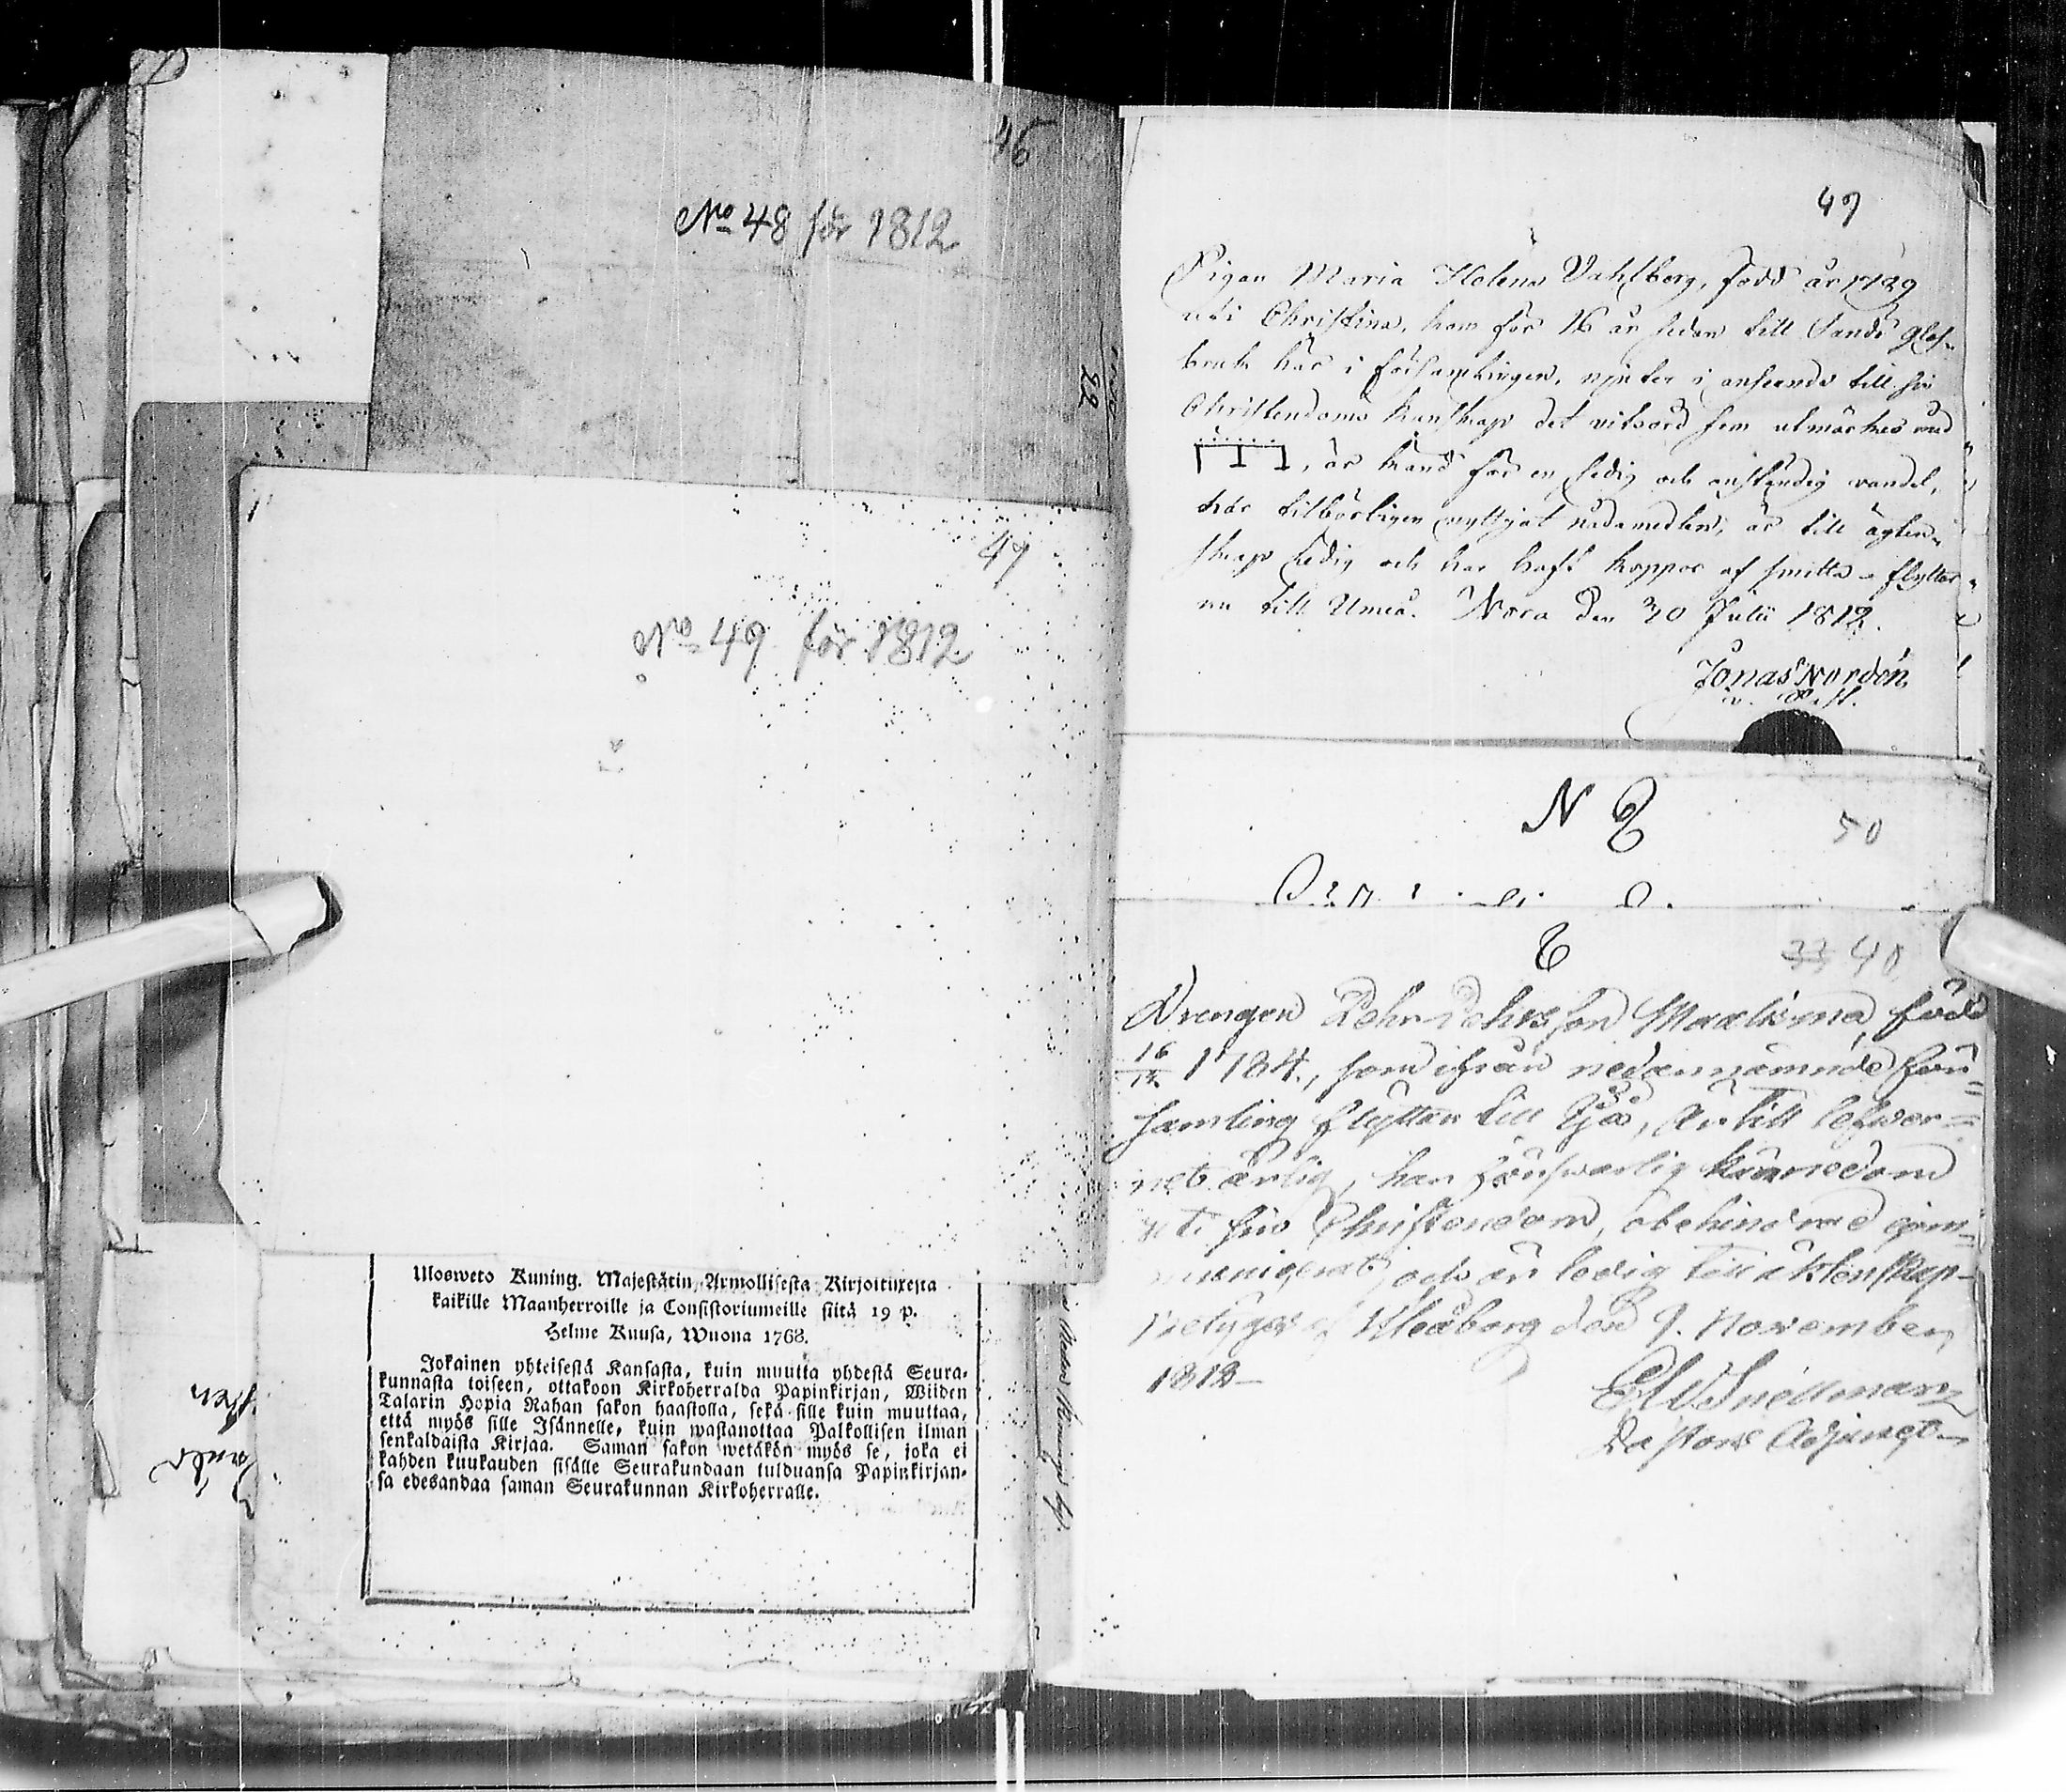 46
No 48 för 1812
22
47
No 49 för 1812
Ulosweto Kuning. Majestätin Armollisesta Kirjoituxesta
kaikille Maanherroille ja Consistoriumeille siitä 19 p.
Helme Kuusa, Wuona 1768.
Jokainen yhteisestä Kansasta, kuin muutta yhdestä Seura-
kunnasta toiseen, ottakoon Kirkoherralda Papinkirjan, Wiiden
Talarin Hopia Rahan sakon haastolla, sekä sille kuin muuttaa,
että myös sille Isännelle, kuin wastanottaa Palkollisen ilman
senkaldaista Kirjaa. Saman sakon wetäkön myös se, joka ei
kahden kuukauden sisälle Seurakundaan tulduansa Papinkirjan-
sa edesandaa saman Seurakunnan Kirkoherralle.
49
Pigan Maria Helena Vahlberg, född år 1789
uti Christina, kom för 16 år sedan till Sandö glas-
bruk här i församlingen, njuter i anseende till sin
Christendoms kunskap det vitsord som utmärkes med
, är känd för en sedig och anständig vandel,
har tilbörligen nyttjat nådamedlen, är till ägten-
skap ledig och har haft koppor af smitta - flyttar
nu till Umeå. Nora den 30 Julii 1812.
Jonas Nordén
v. Past.
N B
50
33 48
Drengen Pehr Pehrsson född
16/12 1784, som ifrån nedannämnde För-
samling flyttar till , är till lefwer-
net ärlig, har förswarlig kännedom
uti sin Christendom, obehindrad com-
municerat och är ledig till äktenskap
betygar af Uleåborg den 9. November
1812
Snellman
Pastors Adjunct